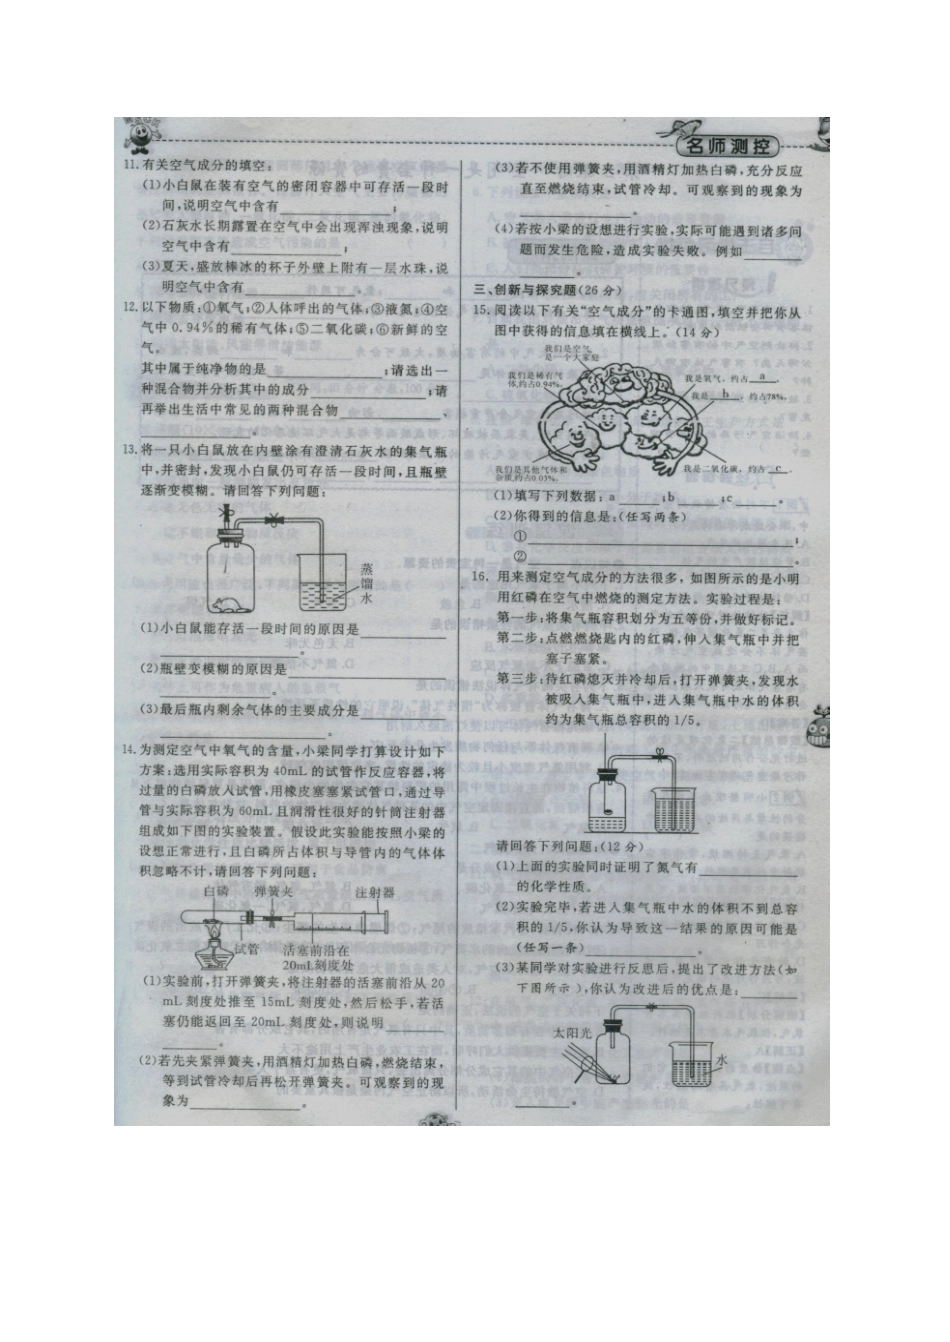 名师测控
11.有关空气成分的填空:
(1)小白鼠在装有空气的密闭容器中可存活一段时
间,说明空气中含有;
(2)石灰水长期露置在空气中会出现浑浊现象,说明
空气中含有;
(3)夏天,盛放棒冰的杯子外壁上附有一层水珠,说
明空气中含有。
12.以下物质:①氧气;②人体呼出的气体;③液氮;④空
气中0.94%的稀有气体;⑤二氧化碳;⑥新鲜的空
气。
其中属于纯净物的是;请选出一
种混合物并分析其中的成分;请
再举出生活中常见的两种混合物、
。
13.将一只小白鼠放在内壁涂有澄清石灰水的集气瓶
中,并密封,发现小白鼠仍可存活一段时间,且瓶壁
逐渐变模糊。请回答下列问题:
蒸馏水
(1)小白鼠能存活一段时间的原因是
。
(2)瓶壁变模糊的原因是
。
(3)最后瓶内剩余气体的主要成分是
。
14.为测定空气中氧气的含量,小梁同学打算设计如下
方案:选用实际容积为40mL的试管作反应容器,将
过量的白磷放入试管,用橡皮塞塞紧试管口,通过导
管与实际容积为60mL且润滑性很好的针筒注射器
组成如下图的实验装置。假设此实验能按照小梁的
设想正常进行,且白磷所占体积与导管内的气体体
积忽略不计,请回答下列问题:
白磷 弹簧夹 注射器
试管 活塞前沿在
20mL刻度处
(1)实验前,打开弹簧夹,将注射器的活塞前沿从20
mL刻度处推至15mL刻度处,然后松手,若活
塞仍能返回至20mL刻度处,则说明
。
(2)若先夹紧弹簧夹,用酒精灯加热白磷,燃烧结束,
等到试管冷却后再松开弹簧夹。可观察到的现
象为。
(3)若不使用弹簧夹,用酒精灯加热白磷,充分反应
直至燃烧结束,试管冷却。可观察到的现象为
。
(4)若按小梁的设想进行实验,实际可能遇到诸多问
题而发生危险,造成实验失败。例如
。
三、创新与探究题(26分)
15.阅读以下有关“空气成分”的卡通图,填空并把你从
图中获得的信息填在横线上。(14分)
我们是空气
是一个大家庭
我们是稀有气
体,约占0.94%。
我是氧气,约占 a 。
我是 b ,约占78%。
我们是其他气体和
杂质,约占0.03%。
我是二氧化碳,约占 c 。
(1)填写下列数据:a ;b ;c 。
(2)你得到的信息是:(任写两条)
① ;
② 。
16. 用来测定空气成分的方法很多,如图所示的是小明
用红磷在空气中燃烧的测定方法。实验过程是:
第一步:将集气瓶容积划分为五等份,并做好标记。
第二步:点燃燃烧匙内的红磷,伸入集气瓶中并把
塞子塞紧。
第三步:待红磷熄灭并冷却后,打开弹簧夹,发现水
被吸入集气瓶中,进入集气瓶中水的体积
约为集气瓶总容积的1/5。
请回答下列问题:(12分)
(1)上面的实验同时证明了氮气有
的化学性质。
(2)实验完毕,若进入集气瓶中水的体积不到总容
积的1/5,你认为导致这一结果的原因可能是
(任写一条)。
(3)某同学对实验进行反思后,提出了改进方法(如
下图所示),你认为改进后的优点是:
太阳光
水
。